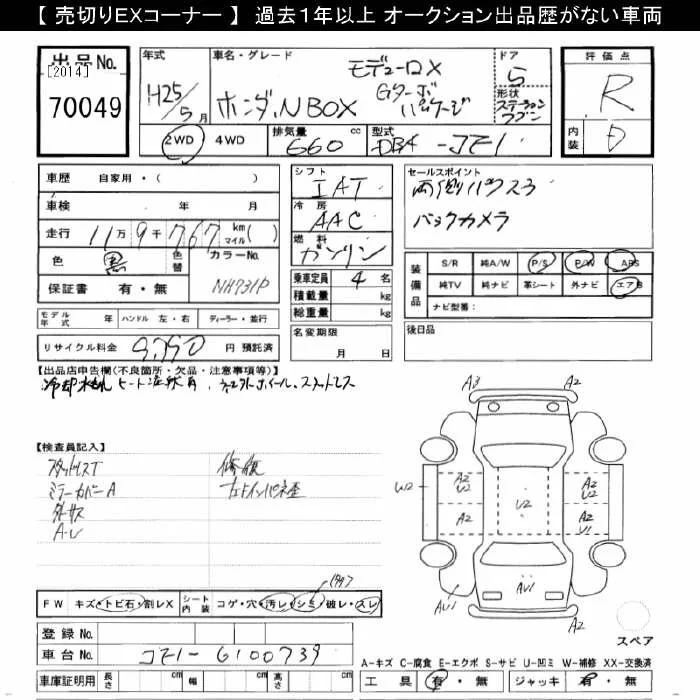 【 売切りEXコーナー 】 過去1年以上 オークション出品歴がない車両
出品No.
[2014]
70049
年式
H25/5月
車名・グレード
モデューロX
Gターボ
パッケージ
ホンダ、NBOX
ドア
5
形状
ステーション
ワゴン
評価点
R
内装
D
2WD 4WD
排気量 660 cc
型式 DBA-JF1
車歴 自家用・( )
車検 年 月
走行 11万9千767 km マイル( )
色 黒 色替 カラーNo. NH731P
保証書 有・無
シフト IAT
冷房 AAC
燃料 ガソリン
乗車定員 4名
積載量 kg
総重量 kg
セールスポイント
両側パワスラ
バックカメラ
装備品
S/R 純A/W P/S P/W ABS
純TV 純ナビ 革シート 外ナビ エアB
ナビ型番:
モデル年式 年 ハンドル 左・右 ディーラー・並行
リサイクル料金 9,790 円 預託済
名変期限 月 日
後日品
【出品店申告欄(不良箇所・欠品・注意事項等)】
A3 A2
【検査員記入】
スタッドレスT
ミラーカバーA
外サス
A-L
修復
W2
A2 U2
A2
U2
A2 U2
A2 U1
AU1
AU1
A2
スペア
FW キズ・トビ石・割レX
シート内装 コゲ・穴・汚レ・シミ・破レ・スレ
登録No.
車台No. JF1-6100739
車庫証明用 長さ cm 幅 cm 高さ cm
A-キズ C-腐食 E-エクボ S-サビ U-凹ミ W-補修 XX-交換済
工具 有・無 ジャッキ 有・無